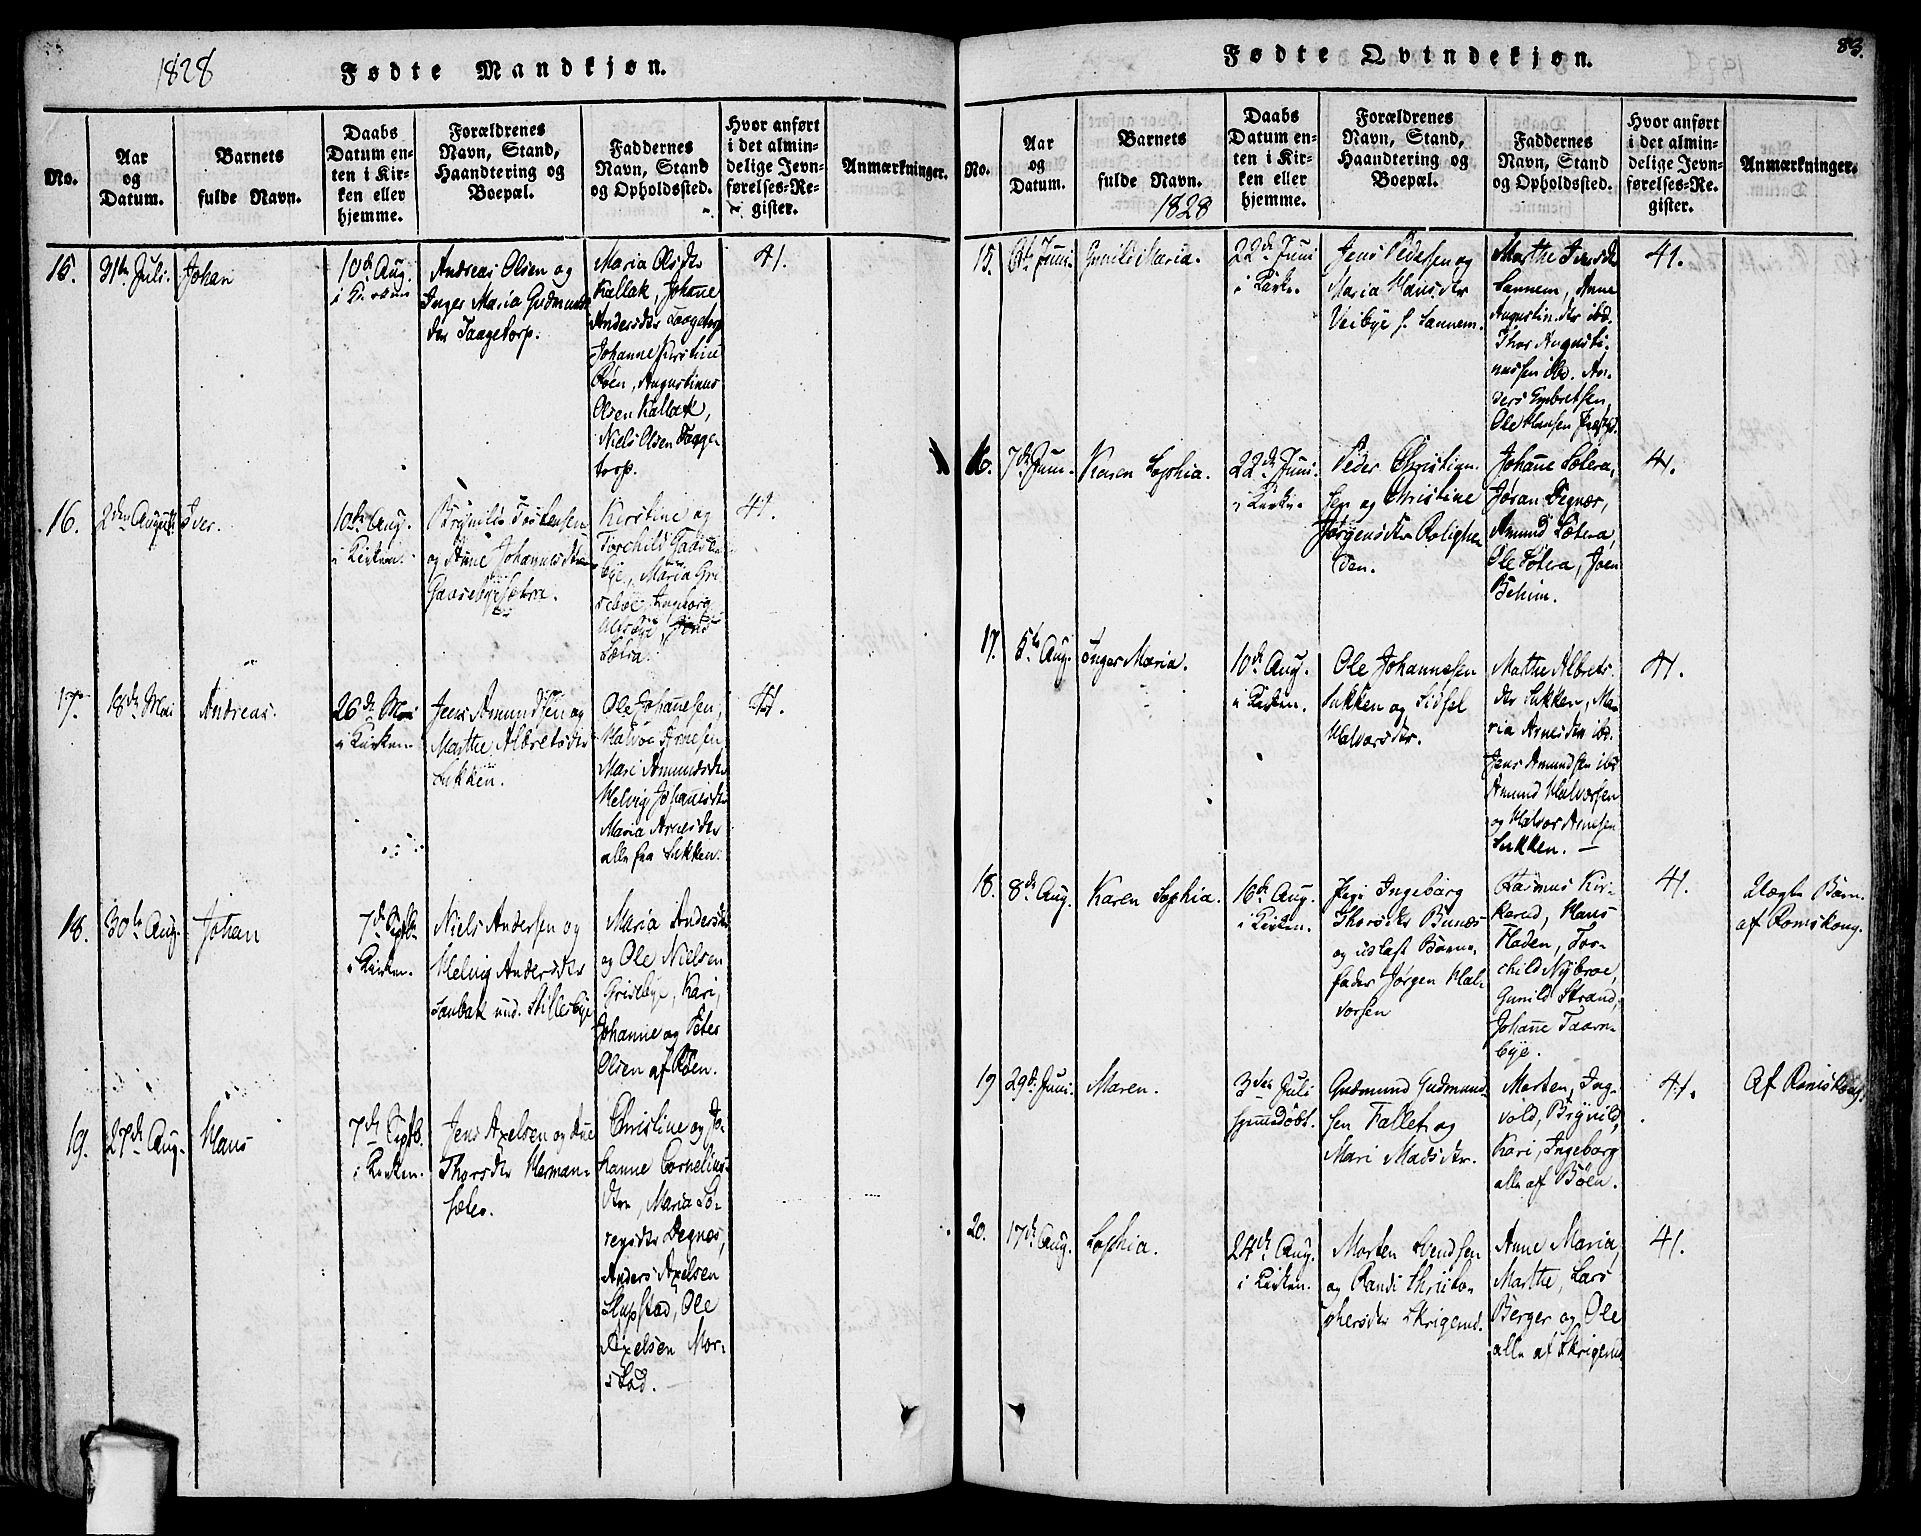 1828
Fødte Mandkjøn.
No.
Aar
og
Datum.
Barnets
fulde Navn.
Daabs
Datum en-
ten i Kir-
ken eller
hjemme.
Forældrenes
Navn, Stand,
Haandtering og
Boepæl.
Faddernes
Navn, Stand
og Opholdssted.
Hvor anført
i det almin-
delige Jevn-
førelses-Re-
gister.
Anmærkninger.
15.
31te Juli.
Johan
10de Aug.
Andreas Olsen og
Inger Maria Gudmunds
dtr Taagetorp.
Maria Olsdtr
Kallak, Johañe
Andersdtr Taagetorp
Johanne Kirstine
Röen, Augustinus
Olsen Kallak,
Niels Olsen Taage-
torp.
41.
16.
2den August.
Iver.
10de Aug.
i Kirken.
Brynild Tostensen
og Anne Johannesdtr
Gaasebyesætra.
Kirstine og
Torchild Gaase-
bye, Maria Gri-
sebye, Ingeborg
Sætra.
41.
17.
18de Mai
Andreas.
26de Mai
i Kirken.
Jens Amundsen og
Marthe Albretsdtr
Sukken.
Ole Johañesen,
Halvor Arnesen,
Mari Amundsdtr
Helvig Johañesdtr
Maria Arnesdtr
alle fra Sukken.
41.
18.
30te Aug.
Johan
7de Septb.
i Kirken.
Niels Andersen og
Helvig Andersdtr
Saubak und. Stillesbye
Maria Andersdtr
og Ole Nielsen
Grisebye, Kari,
Johanne og Peter
Olsen af Röen.
19.
27de Aug.
Hans
7de Septb.
i Kirken.
Jens Axelsen og Añe
Thorsdtr Herman-
Christine og Jo-
hanne Cornelius-
dtre, Maria Sö-
rensdtr Degnæs,
Anders Axelsen
Slupstad, Ole
Axelsen Mor-
stad.
Fødte Qvindekjøn.
83.
No.
Aar
og
Datum.
Barnets
fulde Navn.
1828
Daabs
Datum en-
ten i Kir-
ken eller
hjemme.
Forældrenes
Navn, Stand,
Haandtering og
Boepæl.
Faddernes
Navn, Stand
og Opholdssted.
Hvor anført
i det almin-
delige Jevn-
førelses-Re-
gister.
Anmærkninger.
15.
6te Juni.
Gunild Maria.
22de Juni
i Kirken
Jens Pedersen og
Maria Hansdtr
Veibye f. Sannem.
Marthe Iversdtr
Sannem, Anne
Augustin.dtr ibd.
Thor Augusti-
nussen ibd. An-
ders Embretsen,
Ole Hansen
41.
16.
7de Juni.
Karen Sophia.
22de Juni
i Kirken
Peder Christian-
sen og Christine
Jörgensdtr Rolighe-
den.
Johañe Sætera,
Jöran Degnæs,
Amund Sætera,
Ole Sætera, Joen
41.
17.
5te Aug.
Inger Maria.
10de Aug.
i Kirken.
Ole Johannesen
Sukken og Sidsel
Halvorsdtr.
Marthe Albrets-
dtr Sukken, Ma-
ria Arnesdtr ibd.
Jens Amundsen ibd
Amund Halvorsen
og Halvor Arnesen
Sukken. —
41.
18.
8de Aug.
Karen Sophia.
16de Aug.
i Kirken.
Pige Ingeborg
Thorsdtr Bunæs
og udlagt Barne-
fader Jörgen Hal-
vorsen
Rasmus Kir-
kerud, Hans
Floden, Tor-
child Nybroe,
Gunild Strand,
Johañe Taarn-
bye.
41.
Uægte Barn
af Romskoug.
19
29de Juni.
Maren.
3den Juli
hjemmedöbt.
Gudmund Gudmund-
sen Fallet og
Mari Madsdtr.
Morten, Ing-
vold, Brynild,
Kari, Ingeborg
alle af Böen.
41.
Af Romskoug.
20.
17de Aug.
Sophia.
24de Aug.
i Kirken.
Morten Svendsen
og Randi Christo-
phersdtr Skrigerud.
Anne Maria,
Marthe, Lars
Berger og Ole
alle af Skrigerud
41.